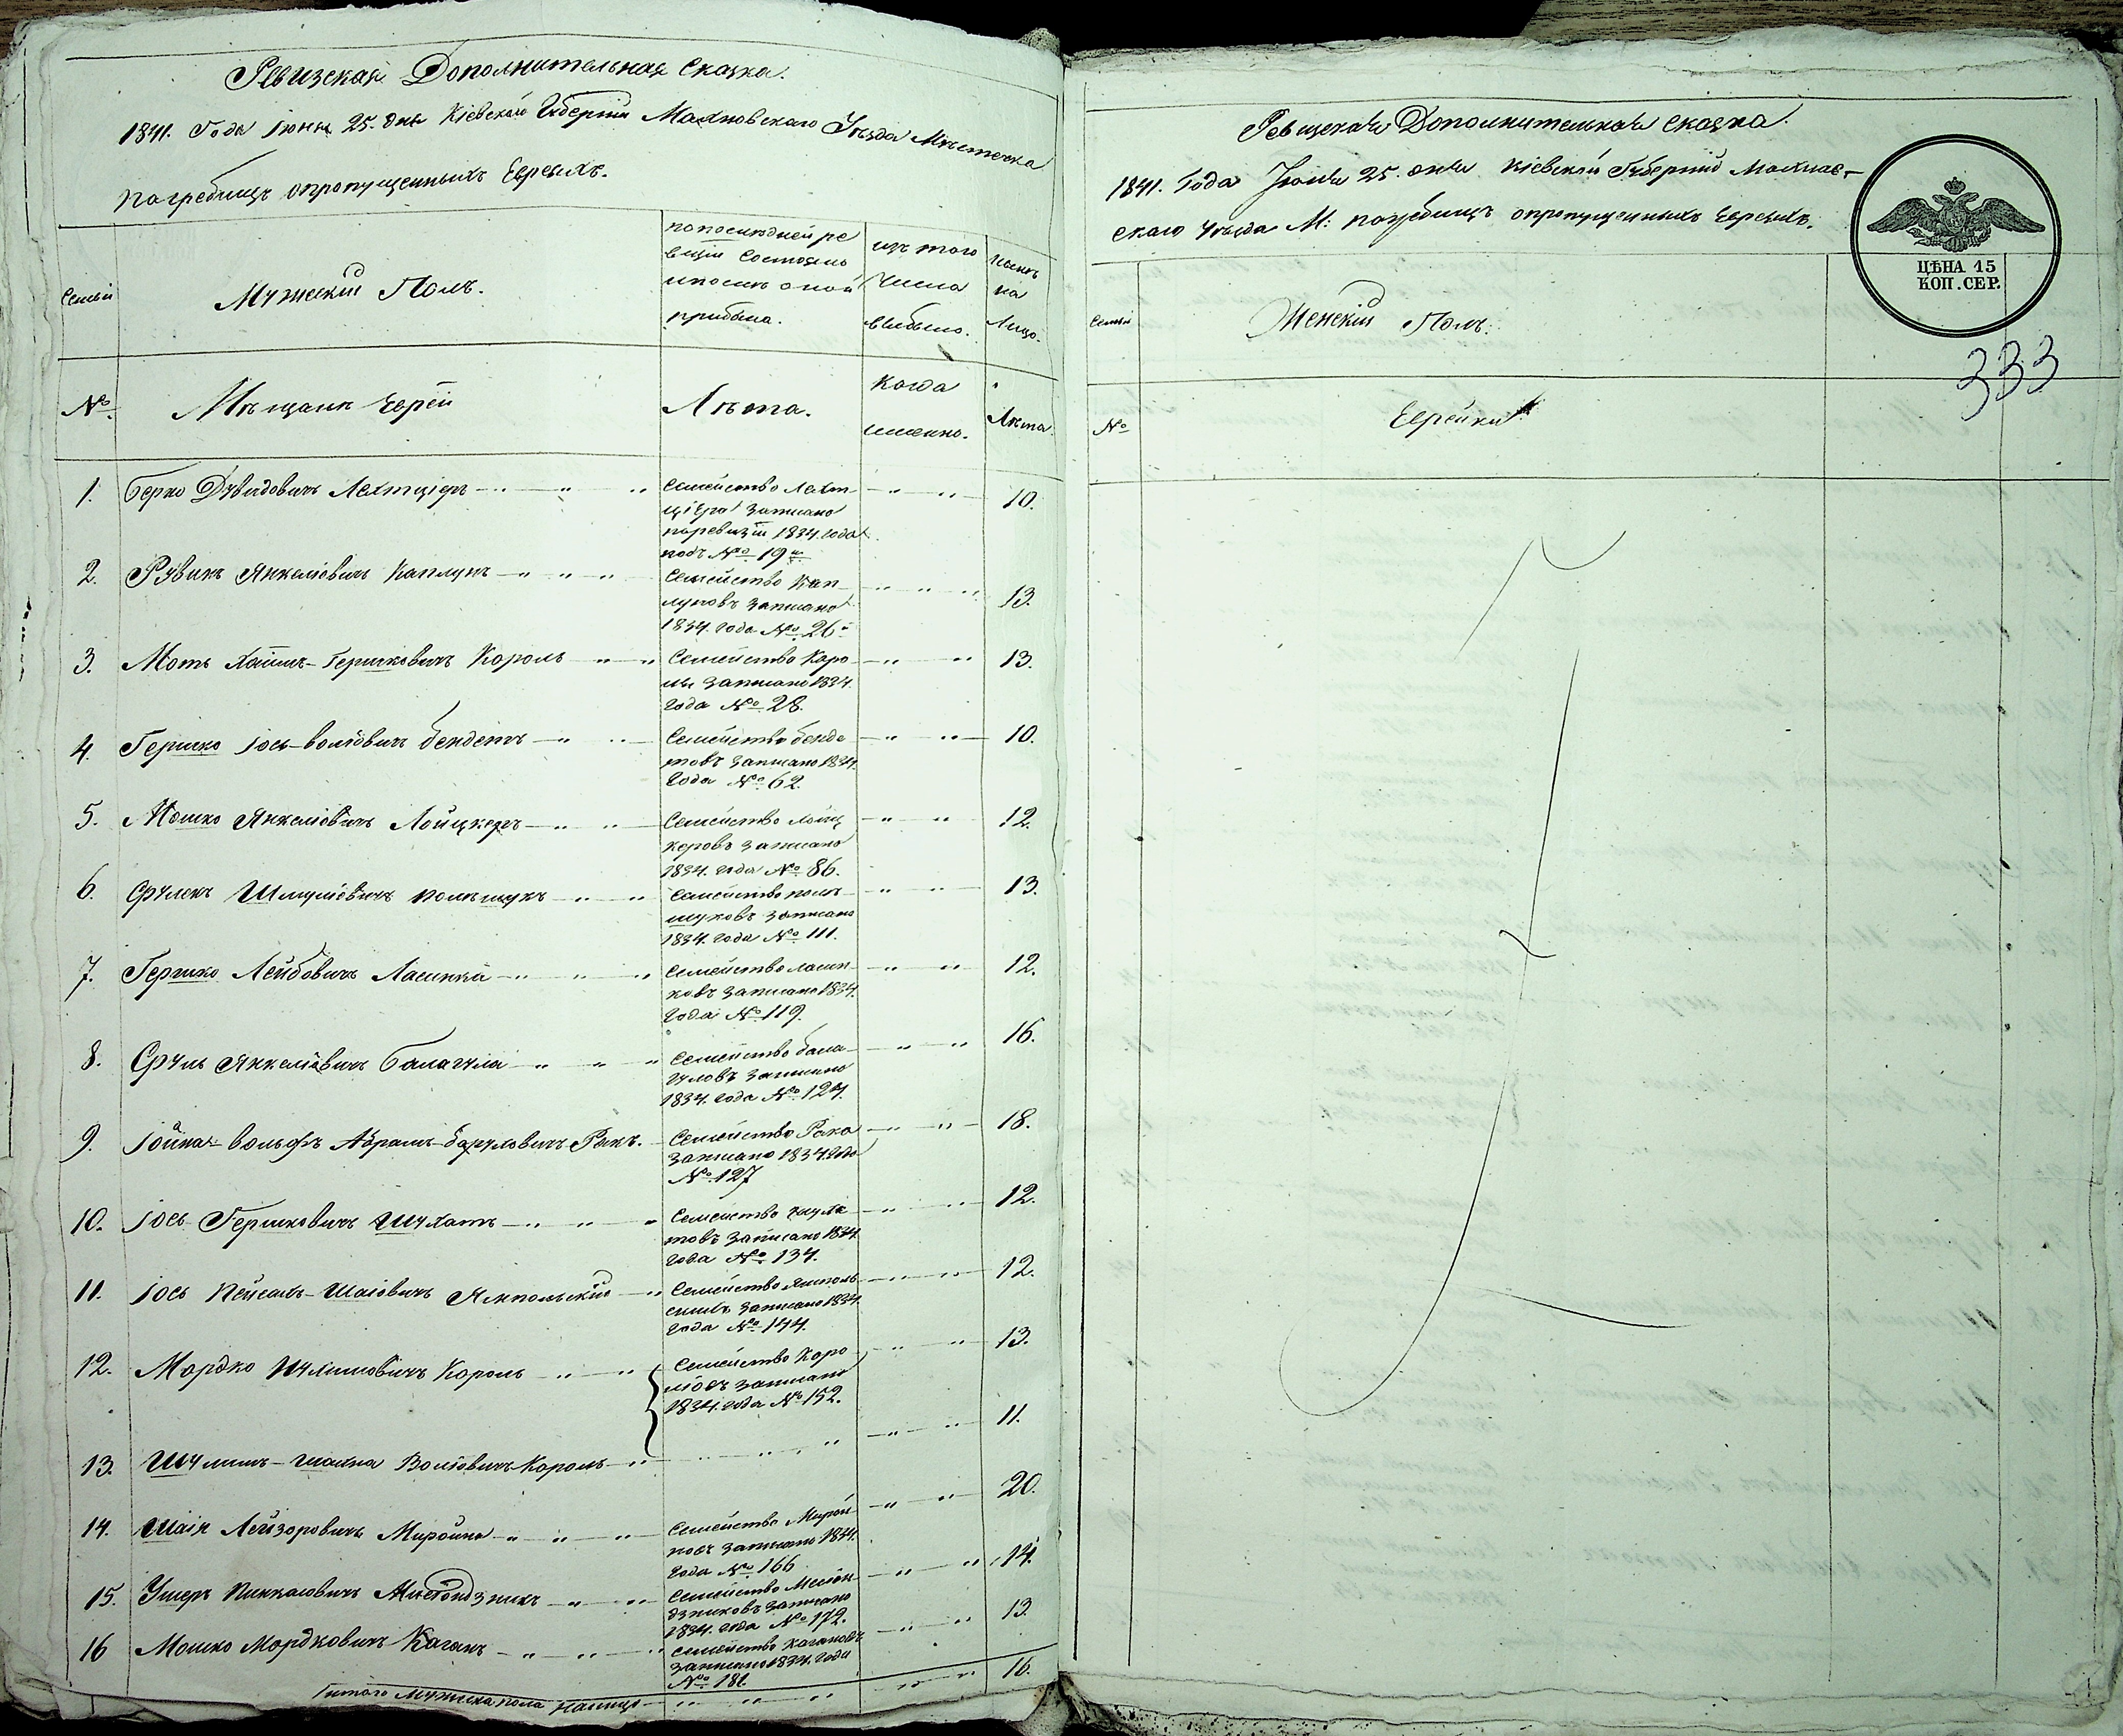 Ревизская Дополнительная Сказка.
1841. Года Іюня 25. дня Кіевской Губерніи Махновскаго Уѣзда Мѣстечка
Погребищъ опропущенныхъ Евреяхъ.
Семьи
Мужескій Полъ.
попослѣдней ре
візіи состояло
ипослѣ оной
прибыло.
изъ того
числа
выбыло.
нынѣ
на
Лицо.
№
Мѣщане Евреи
Лѣта.
Когда
именно.
Лѣта.
1. Берко Дувидовичъ Лехтціеръ
Семейство Лехт
ціера записано
поревизіи 1834. года
подъ № 19м
10.
2. Рувинъ Янкеліовичъ Каплунъ
Семейство Кап
луновъ записано
1834. года № 26
13.
3. Моть Хаимъ-Гершковичъ Король
Семейство Коро
ля записано 1834.
года № 28.
13.
4. Гершко Іось-Волковичъ Бендетъ
Семейство Бенде
товъ записано 1834.
Года № 62.
10.
5. Мошко Янкеліовичъ Лойцкеръ
Семейство Лойц
керовъ записано
1834. года № 86.
12.
6. Сруленъ Шмуліовичъ Полѣщукъ
Семейство Полѣ
щуковъ записано
1834. года № 111.
13.
7. Гершко Лейбовичъ Ласинкій
Семейство Ласин
ковъ записано 1834.
Года № 119.
12.
8. Сруль Янкеліовичъ Балагула
Семейство Бала
гуловъ записано
1834. года № 124.
16.
9. Іойна-Вольфъ Абрамъ-Боруховичъ Ракъ.
Семейство Рака
записано 1834. года
№ 127
18.
10. Іось Гершковичъ Шухатъ
Семейство Шуха
товъ записано 1834.
года № 134.
12.
11. Іось Пейсахъ-Шаіовичъ Ямпольскій
Семейство Ямполь
скихъ записано 1834.
года № 144.
12.
12. Мордко Шулимовичъ Король
Семейство Коро
ліовъ записано
1834. года № 152.
13.
13. Шулимъ-Шахна Волковичъ Король
11.
14. Шаія Лейзоровичъ Миройно
Семейство Мирой
новъ записано 1834.
года № 166
20.
15. Ушеръ Пинхасовичъ Месіондзникъ
Семейство Месіон
дзниковъ записано
1834. года № 172.
14.
16 Мошко Мордковичъ Каганъ
Семейство Кагановъ
записано 1834. года
№ 181
13.
Итого Мужеска пола налицо
16.
Ревизская Дополнительная Сказка.
1841. Года Іюня 25. дня Кіевской Губерніи Махнов-
скаго Уѣзда М: Погребищъ опропущенныхъ Евреяхъ.
ЦѢНА 15
КОП. СЕР.
Семьи
Женскій Полъ.
333
№
Еврейки